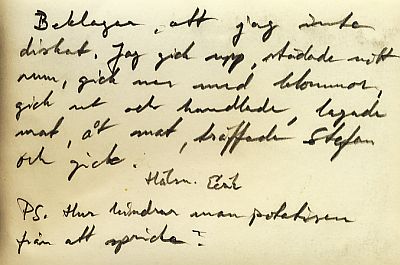 Beklagar, att jag inte
diskat. Jag gick upp, städade mitt
rum, gick ner med blommor,
gick ut och handlade, lagade
mat, åt mat, träffade Stefan
och gick.
Hälsn. Erik
PS. Hur hindrar man potatisen
från att spricka?